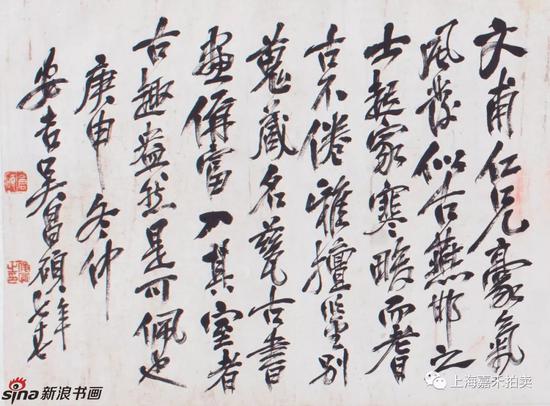 文甫仁兄豪氣
風發似古燕邯之
士起家寒畯而耆
古不倦雅擅鑒别
蒐藏名甓古書
畫侔富入其室者
古趣盎然是可佩也
庚申冬仲
安吉吳昌碩年七十七
sina新浪书画
上海嘉禾拍卖